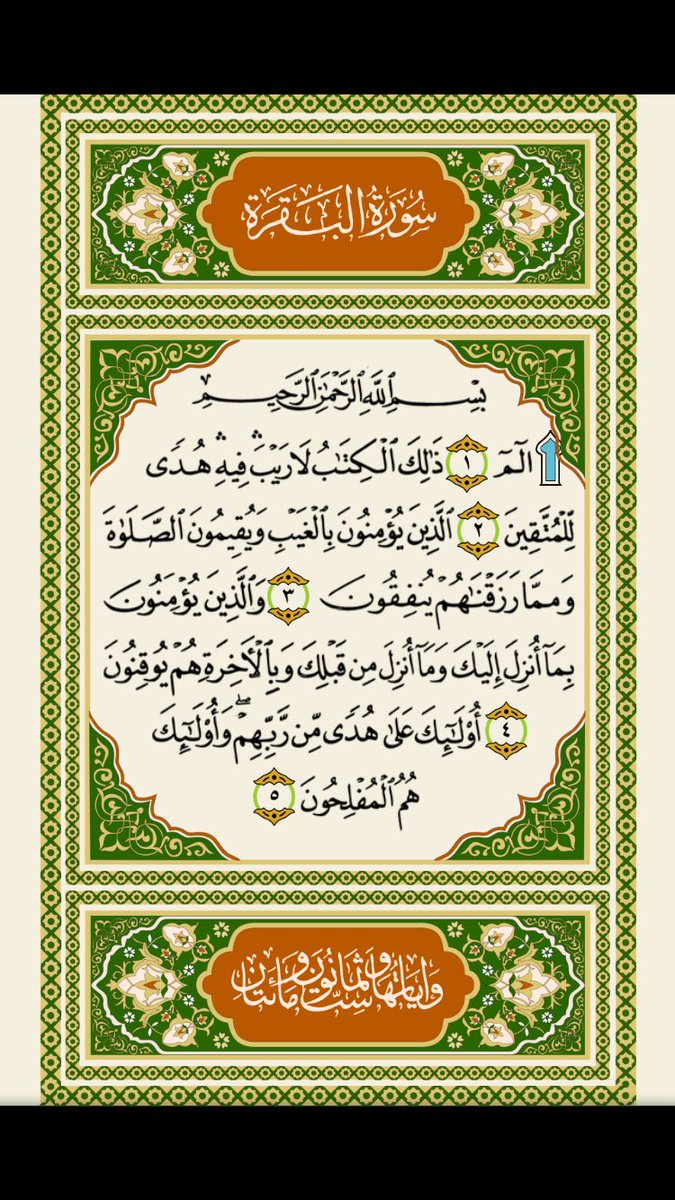 سُورَةُ الْبَقَرَةِ
بِسْمِ ٱللَّهِ ٱلرَّحْمَٰنِ ٱلرَّحِيمِ
1 الٓمٓ ١ ذَٰلِكَ ٱلْكِتَٰبُ لَا رَيْبَ ۛ فِيهِ ۛ هُدًى
لِّلْمُتَّقِينَ ٢ ٱلَّذِينَ يُؤْمِنُونَ بِٱلْغَيْبِ وَيُقِيمُونَ ٱلصَّلَوٰةَ
وَمِمَّا رَزَقْنَٰهُمْ يُنفِقُونَ ٣ وَٱلَّذِينَ يُؤْمِنُونَ
بِمَآ أُنزِلَ إِلَيْكَ وَمَآ أُنزِلَ مِن قَبْلِكَ وَبِٱلْأَخِرَةِ هُمْ يُوقِنُونَ
٤ أُو۟لَٰٓئِكَ عَلَىٰ هُدًى مِّن رَّبِّهِمْ ۖ وَأُو۟لَٰٓئِكَ
هُمُ ٱلْمُفْلِحُونَ ٥
وَآيَاتُهَا سِتٌّ وَثَمَانُونَ وَمَائَتَانِ